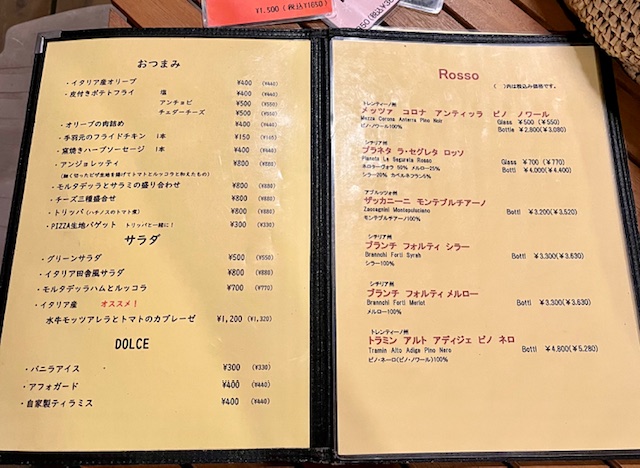 ¥1,500 (税込¥1650)
おつまみ
・イタリア産オリーブ ¥400 (¥440)
・皮付きポテトフライ 塩 ¥400 (¥440)
アンチョビ ¥500 (¥550)
チェダーチーズ ¥500 (¥550)
・オリーブの肉詰め ¥400 (¥440)
・手羽元のフライドチキン 1本 ¥150 (¥165)
・窯焼きハーブソーセージ 1本 ¥400 (¥440)
・アンジョレッティ ¥800 (¥880)
(細く切ったピザ生地を揚げてトマトとルッコラと和えたもの)
・モルタデッラとサラミの盛り合わせ ¥800 (¥880)
・チーズ三種盛合せ ¥800 (¥880)
・トリッパ(ハチノスのトマト煮) ¥800 (¥880)
・PIZZA生地バゲット トリッパと一緒に! ¥300 (¥330)
サラダ
・グリーンサラダ ¥500 (¥550)
・イタリア田舎風サラダ ¥800 (¥880)
・モルタデッラハムとルッコラ ¥700 (¥770)
・イタリア産 オススメ!
水牛モッツアレラとトマトのカプレーゼ ¥1,200 (¥1,320)
DOLCE
・バニラアイス ¥300 (¥330)
・アフォガード ¥400 (¥440)
・自家製ティラミス ¥400 (¥440)
Rosso
( )内は税込み価格です。
トレンティーノ州
メッツァ コロナ アンティッラ ピノ ノワール
Mezza Corona Anterra Pino Noir Glass ¥500 (¥550)
ピノ・ノワール100% Bottl ¥2,800(¥3,080)
シチリア州
プラネタ ラ・セグレタ ロッソ
Planeta La Segureta Rosso Glass ¥700 (¥770)
ネロダーヴォラ 50% メルロー25% Bottl ¥4,000(¥4,400)
シラー20% カベルネフラン5%
アブルッツオ州
ザッカニーニ モンテプルチアーノ
Zaccagnini Montepulusiano Bottl ¥3,200(¥3,520)
モンテプルチアーノ100%
シチリア州
ブランチ フォルティ シラー
Brannchi Forti Syrah Bottl ¥3,300(¥3,630)
シラー100%
シチリア州
ブランチ フォルティ メルロー
Brannchi Forti Merlot Bottl ¥3,300(¥3,630)
メルロー100%
トレンティーノ州
トラミン アルト アディジェ ピノ ネロ
Tramin Alto Adige Pino Nero Bottl ¥4,800(¥5,280)
ピノ・ネーロ(ピノ・ノワール)100%